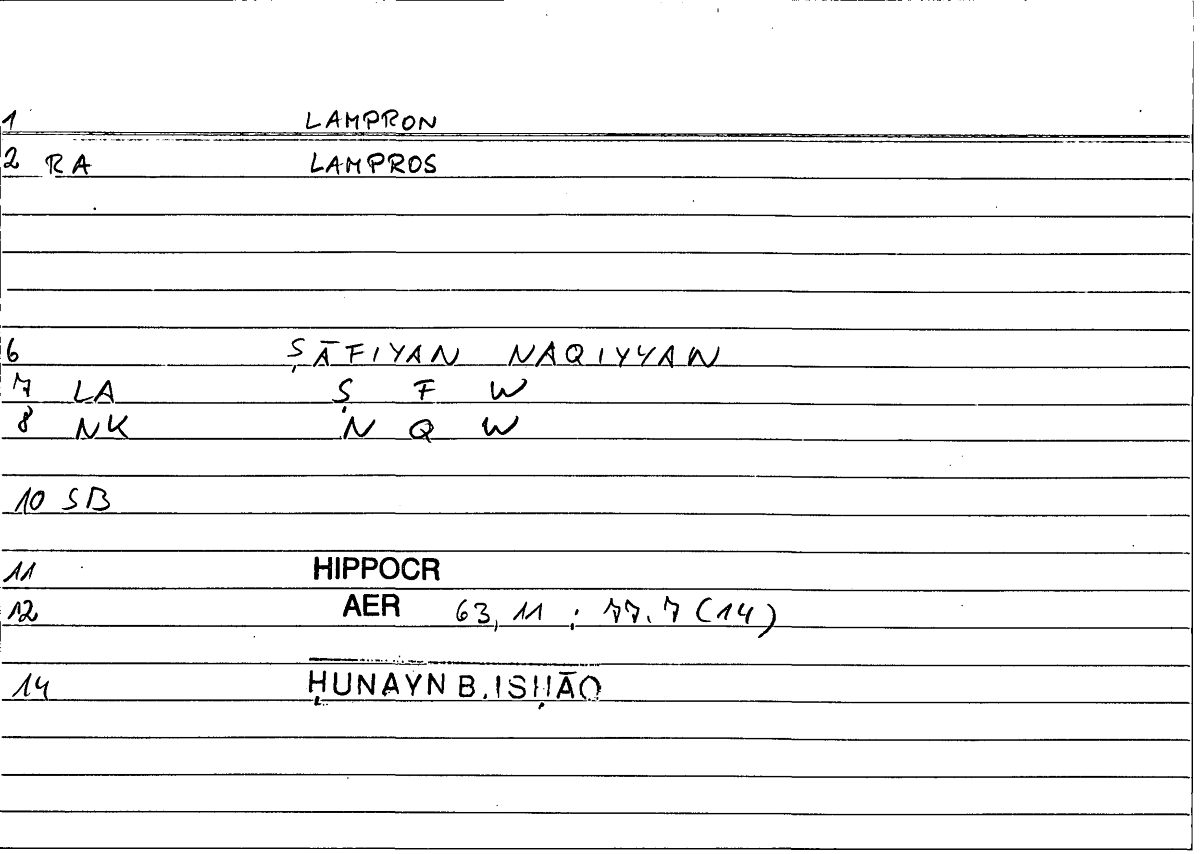 1 LAMPRON
2 RA LAMPROS
6 ṢĀFIYAN NAQIYYAN
7 LA Ṣ F W
8 NK N Q W
10 SB
11 HIPPOCR
12 AER 63,11 ; 77.7 (14)
14 ḤUNAYN B. ISḤĀQ